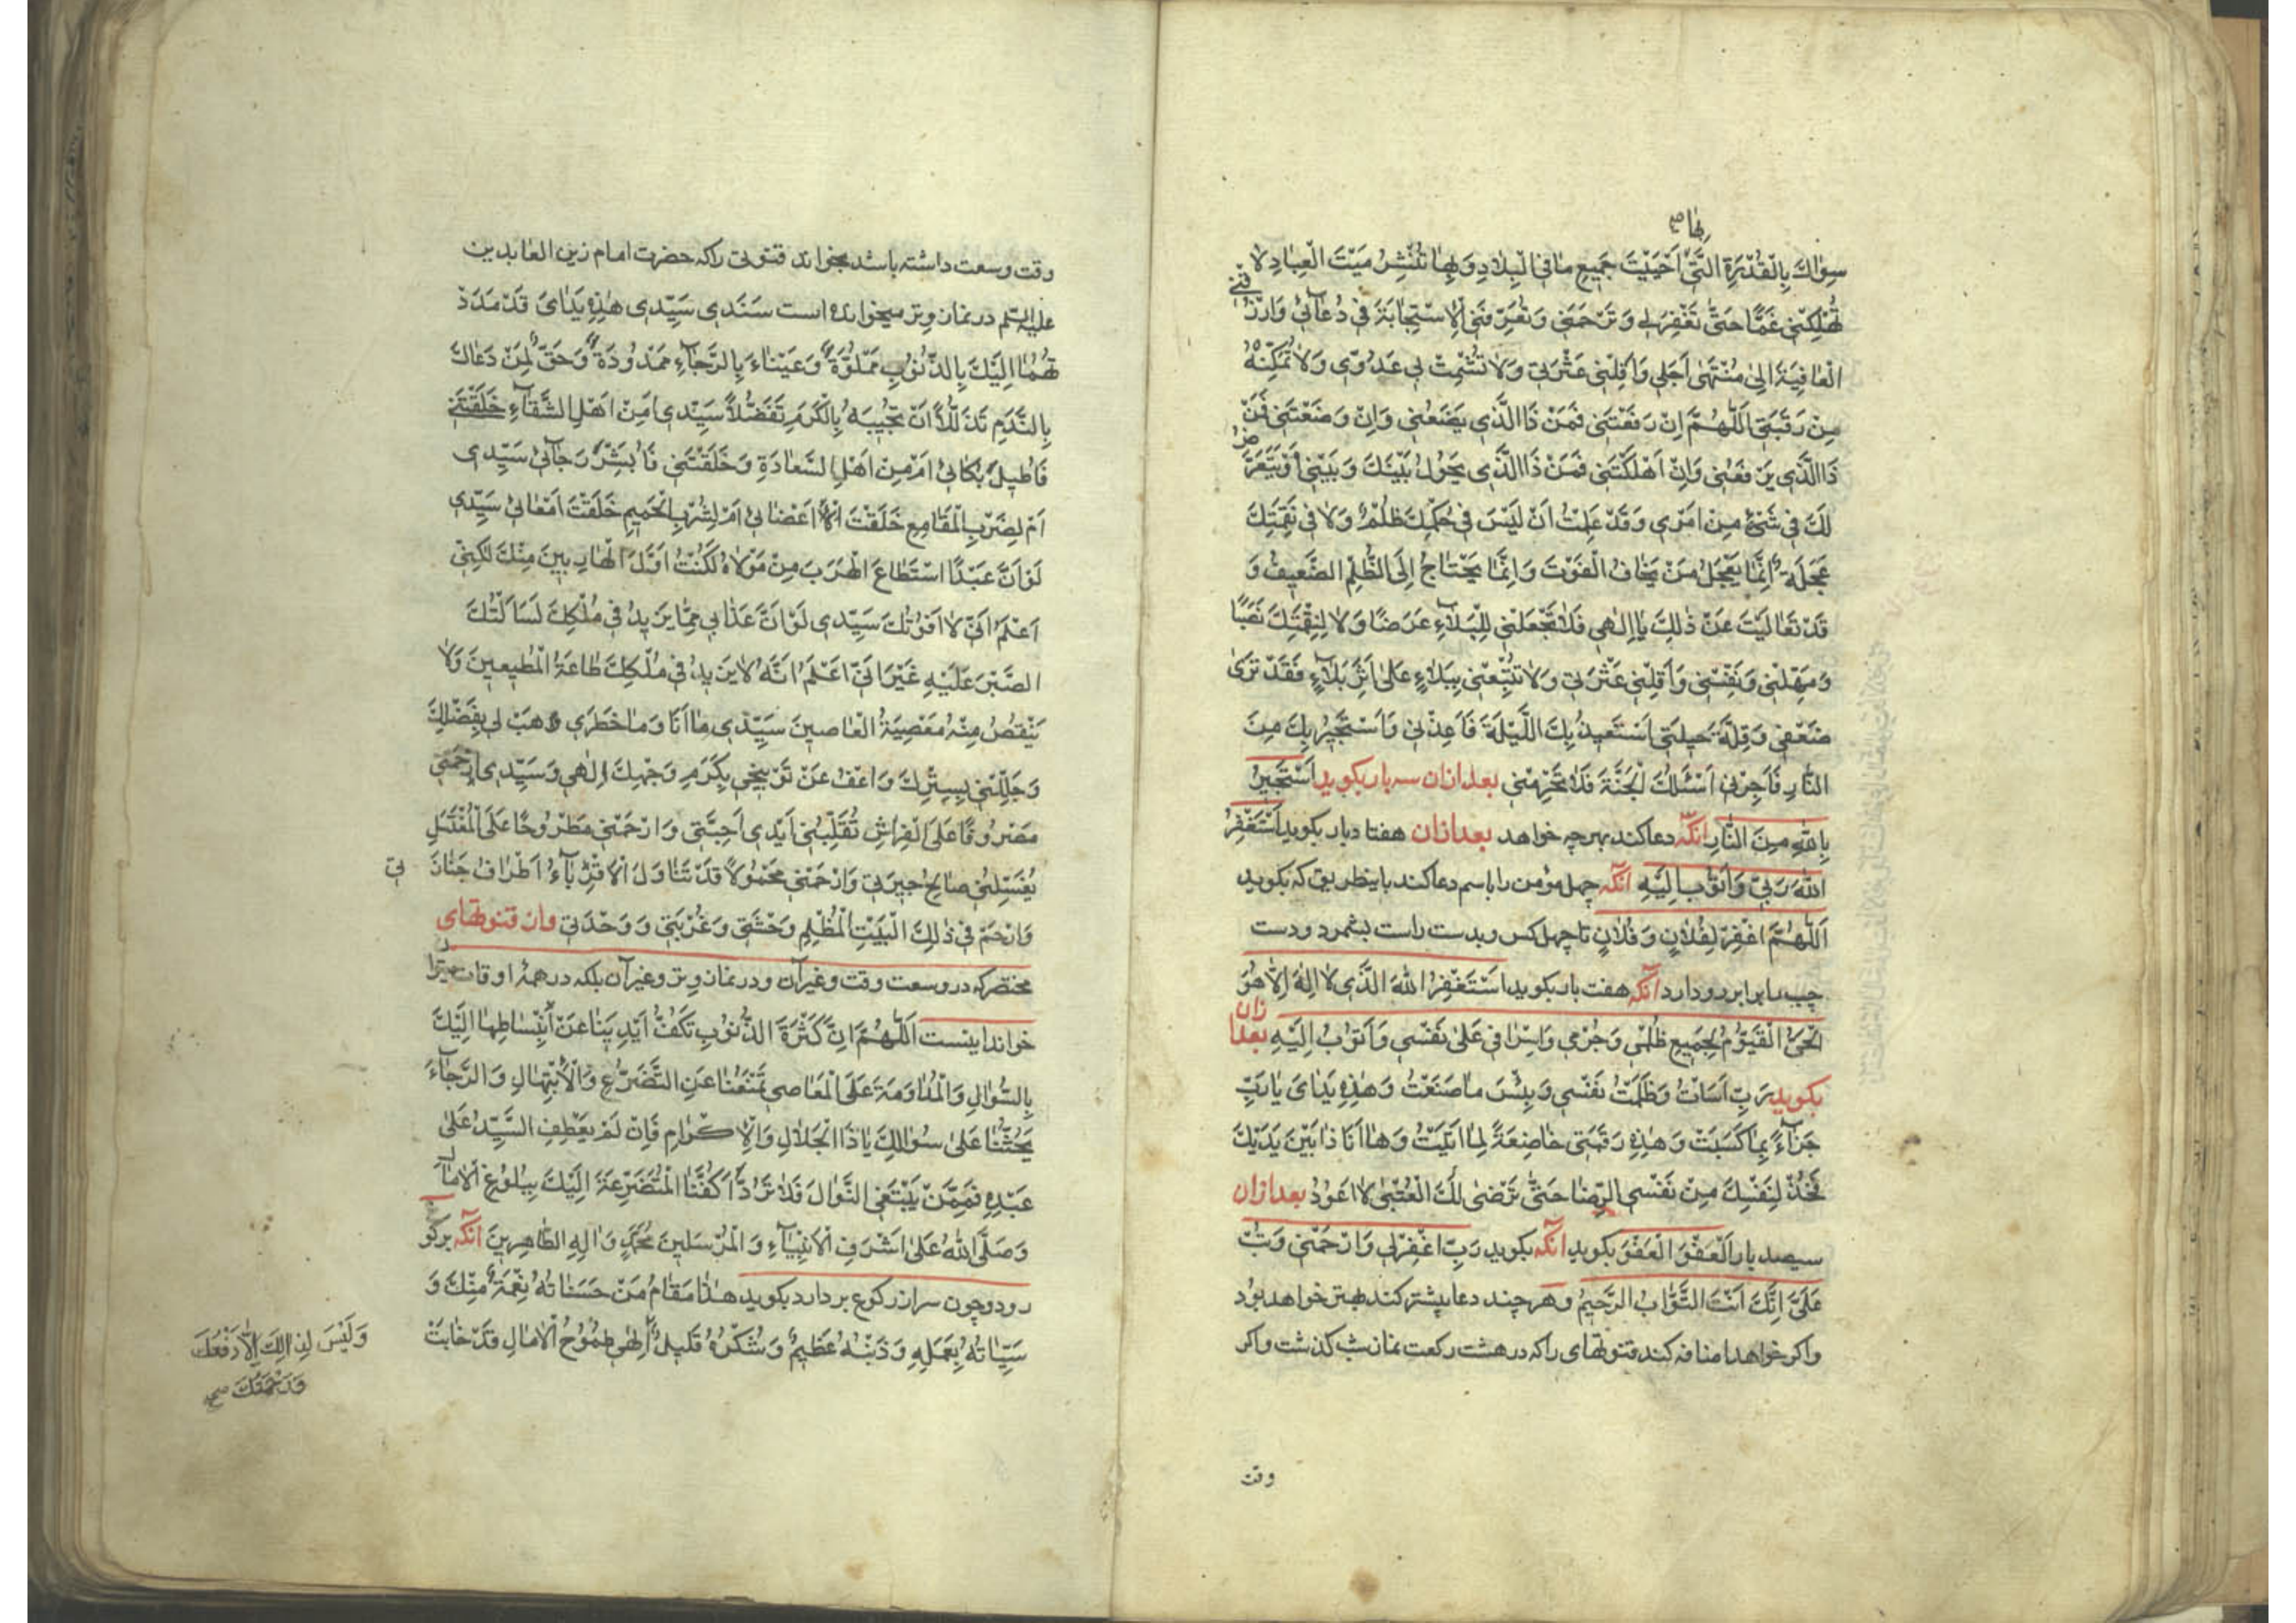 بهاصح
سِوَاكَ بِالْقُدْرَةِ الَّتِي أَحْيَيْتَ جَمِيعَ مَا فِي الْبِلَادِ وَبِهَا تُنْشِرُ مَيْتَ الْعِبَادِ لَا
تُهْلِكْنِي غَمًّا حَتَّى تَغْفِرَ لِي وَتَرْحَمَنِي وَتُعَرِّفَنِي الْاِسْتِجَابَةَ فِي دُعَائِي وَارْزُقْنِي
الْعَافِيَةَ اِلَى مُنْتَهَى اَجَلِي وَاَقِلْنِي عَثْرَتِي وَلَا تُشْمِتْ بِي عَدُوِّي وَلَا تُمَكِّنْهُ
مِنْ رَقَبَتِي اَللّٰهُمَّ اِنْ رَفَعْتَنِي فَمَنْ ذَا الَّذِي يَضَعُنِي وَاِنْ وَضَعْتَنِي فَمَنْ
ذَا الَّذِي يَرْفَعُنِي وَاِنْ اَهْلَكْتَنِي فَمَنْ ذَا الَّذِي يَحُولُ بَيْنَكَ وَبَيْنِي اَوْ يَتَعَرَّضُ
لَكَ فِي شَيْءٍ مِنْ اَمْرِي وَقَدْ عَلِمْتُ اَنْ لَيْسَ فِي حُكْمِكَ ظُلْمٌ وَلَا فِي نَقِمَتِكَ
عَجَلَةٌ اِنَّمَا يَعْجَلُ مَنْ يَخَافُ الْفَوْتَ وَاِنَّمَا يَحْتَاجُ اِلَى الظُّلْمِ الضَّعِيفُ وَ
قَدْ تَعَالَيْتَ عَنْ ذٰلِكَ يَا اِلٰهِي فَلَا تَجْعَلْنِي لِلْبَلَاءِ غَرَضًا وَلَا لِنِقْمَتِكَ نَصَبًا
وَمَهِّلْنِي وَنَفِّسْنِي وَاَقِلْنِي عَثْرَتِي وَلَا تُتْبِعْنِي بِبَلَاءٍ عَلَى اَثَرِ بَلَاءٍ فَقَدْ تَرَى
ضَعْفِي وَقِلَّةَ حِيلَتِي اَسْتَعِيذُ بِكَ اللَّيْلَةَ فَاَعِذْنِي وَاَسْتَجِيرُ بِكَ مِنَ
النَّارِ فَاَجِرْنِي اَسْئَلُكَ الْجَنَّةَ فَلَا تَحْرِمْنِي بعد ازان سه بار بكويد اَسْتَجِيرُ
بِاللّٰهِ مِنَ النَّارِ آنكه دعا كند بهر چه خواهد بعد ازان هفتاد بار بكويد اَسْتَغْفِرُ
اللّٰهَ رَبِّي وَاَتُوبُ اِلَيْهِ آنكه چهل مؤمن را باسم دعا كند باينطريق كه بكويد
اَللّٰهُمَّ اغْفِرْ لِفُلَانٍ وَفُلَانٍ تا چهل كس و بدست راست بشمرد و دست
چپ را برابر رو دارد آنكه هفت بار بكويد اَسْتَغْفِرُ اللّٰهَ الَّذِي لَا اِلٰهَ اِلَّا هُوَ
الْحَيُّ الْقَيُّومُ لِجَمِيعِ ظُلْمِي وَجُرْمِي وَاِسْرَافِي عَلَى نَفْسِي وَاَتُوبُ اِلَيْهِ بعد ازان
بكويد رَبِّ اَسَأْتُ وَظَلَمْتُ نَفْسِي وَبِئْسَ مَا صَنَعْتُ وَهٰذِهِ يَدَايَ يَا رَبِّ
جَزَاءً بِمَا كَسَبَتْ وَهٰذِهِ رَقَبَتِي خَاضِعَةً لِمَا اَتَيْتُ وَهَا اَنَا ذَا بَيْنَ يَدَيْكَ
فَخُذْ لِنَفْسِكَ مِنْ نَفْسِي الرِّضَا حَتَّى تَرْضَى لَكَ الْعُتْبَى لَا اَعُودُ بعد ازان
سيصد بار اَلْعَفْوَ الْعَفْوَ بكويد آنكه بكويد رَبِّ اغْفِرْ لِي وَارْحَمْنِي وَتُبْ
عَلَيَّ اِنَّكَ اَنْتَ التَّوَّابُ الرَّحِيمُ و هر چند دعا بيشتر كند بهتر خواهد بود
و اكر خواهد اضافه كند قنوتهاى را كه در هشت ركعت نماز شب كذشت و اكر
وقت
وقت وسعت داشته باشد بخواند قنوتى را كه حضرت امام زين العابدين
عليه السلم در نماز وتر ميخوانده است سَيِّدِي سَيِّدِي هٰذِهِ يَدَايَ قَدْ مَدَدْ
تُهُمَا اِلَيْكَ بِالذُّنُوبِ مَمْلُوَّةً وَعَيْنَاءَ بِالرَّجَاءِ مَمْدُودَةً وَحَقٌّ لِمَنْ دَعَاكَ
بِالنَّدَمِ تَذَلُّلًا اَنْ تُجِيبَهُ بِالْكَرَمِ تَفَضُّلًا سَيِّدِي اَمِنْ اَهْلِ الشَّقَاءِ خَلَقْتَنِي
فَاُطِيلَ بُكَائِي اَمْ مِنْ اَهْلِ السَّعَادَةِ وَخَلَقْتَنِي فَاُبَشِّرَ رَجَائِي سَيِّدِي
اَمْ لِضَرْبِ الْمَقَامِعِ خَلَقْتَ اَعْضَائِي اَمْ لِشُرْبِ الْحَمِيمِ خَلَقْتَ اَمْعَائِي سَيِّدِي
لَوْ اَنَّ عَبْدًا اسْتَطَاعَ الْهَرَبَ مِنْ مَوْلَاهُ لَكُنْتُ اَوَّلَ الْهَارِبِينَ مِنْكَ لٰكِنِّي
اَعْلَمُ اَنِّي لَا اَفُوتُكَ سَيِّدِي لَوْ اَنَّ عَذَابِي مِمَّا يَزِيدُ فِي مُلْكِكَ لَسَاَلْتُكَ
الصَّبْرَ عَلَيْهِ غَيْرَ اَنِّي اَعْلَمُ اَنَّهُ لَا يَزِيدُ فِي مُلْكِكَ طَاعَةُ الْمُطِيعِينَ وَلَا
يَنْقُصُ مِنْهُ مَعْصِيَةُ الْعَاصِينَ سَيِّدِي مَا اَنَا وَمَا خَطَرِي هَبْ لِي بِفَضْلِكَ
وَجَلِّلْنِي بِسِتْرِكَ وَاعْفُ عَنْ تَوْبِيخِي بِكَرَمِ وَجْهِكَ اِلٰهِي وَسَيِّدِي اِرْحَمْنِي
مَصْرُوعًا عَلَى الْفِرَاشِ تُقَلِّبُنِي اَيْدِي اَحِبَّتِي وَارْحَمْنِي مَطْرُوحًا عَلَى الْمُغْتَسَلِ
يُغَسِّلُنِي صَالِحُ جِيرَتِي وَارْحَمْنِي مَحْمُولًا قَدْ تَنَاوَلَ الْاَقْرِبَاءُ اَطْرَافَ جَنَازَ تِي
وَارْحَمْ فِي ذٰلِكَ الْبَيْتِ الْمُظْلِمِ وَحْشَتِي وَغُرْبَتِي وَوَحْدَتِي و از قنوتهاى
مختصر كه در وسعت وقت و غير آن و در نماز وتر و غير آن بلكه در همهٔ اوقات ميتوان
خواند اينست اَللّٰهُمَّ اِنَّ كَثْرَةَ الذُّنُوبِ تَكُفُّ اَيْدِيَنَا عَنْ اِنْبِسَاطِهَا اِلَيْكَ
بِالسُّؤَالِ وَالْمُدَاوَمَةَ عَلَى الْمَعَاصِي تَمْنَعُنَا عَنِ التَّضَرُّعِ وَالْاِبْتِهَالِ وَالرَّجَاءَ
يَحُثُّنَا عَلَى سُؤَالِكَ يَا ذَا الْجَلَالِ وَالْاِكْرَامِ فَاِنْ لَمْ يَعْطِفِ السَّيِّدُ عَلَى
عَبْدِهِ فَمِمَّنْ يَبْتَغِي النَّوَالَ فَلَا تَرُدَّ اَكُفَّنَا الْمُتَضَرِّعَةَ اِلَيْكَ بِبُلُوغِ الْاٰمَالِ
وَصَلَّى اللّٰهُ عَلَى اَشْرَفِ الْاَنْبِيَاءِ وَالْمُرْسَلِينَ مُحَمَّدٍ وَاٰلِهِ الطَّاهِرِينَ آنكه بركو
رود و چون سر از ركوع بردارد بكويد هٰذَا مَقَامُ مَنْ حَسَنَاتُهُ نِعْمَةٌ مِنْكَ وَ
سَيِّئَاتُهُ بِعَمَلِهِ وَذَنْبُهُ عَظِيمٌ وَشُكْرُهُ قَلِيلٌ اِلٰهِي طُمُوحُ الْاٰمَالِ قَدْ خَابَتْ
وَلَيْسَ لِذٰلِكَ اِلَّا دَفْعُكَ
وَرَحْمَتُكَ صح